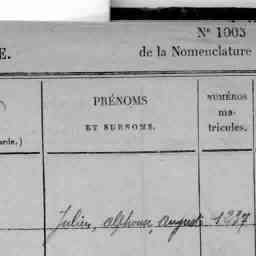 N° 1005
E.
de la Nomenclature
PRÉNOMS
ET SURNOMS.
NUMÉROS
ma-
tricules.
arde.)
Julien, Alphonse, Auguste 1237